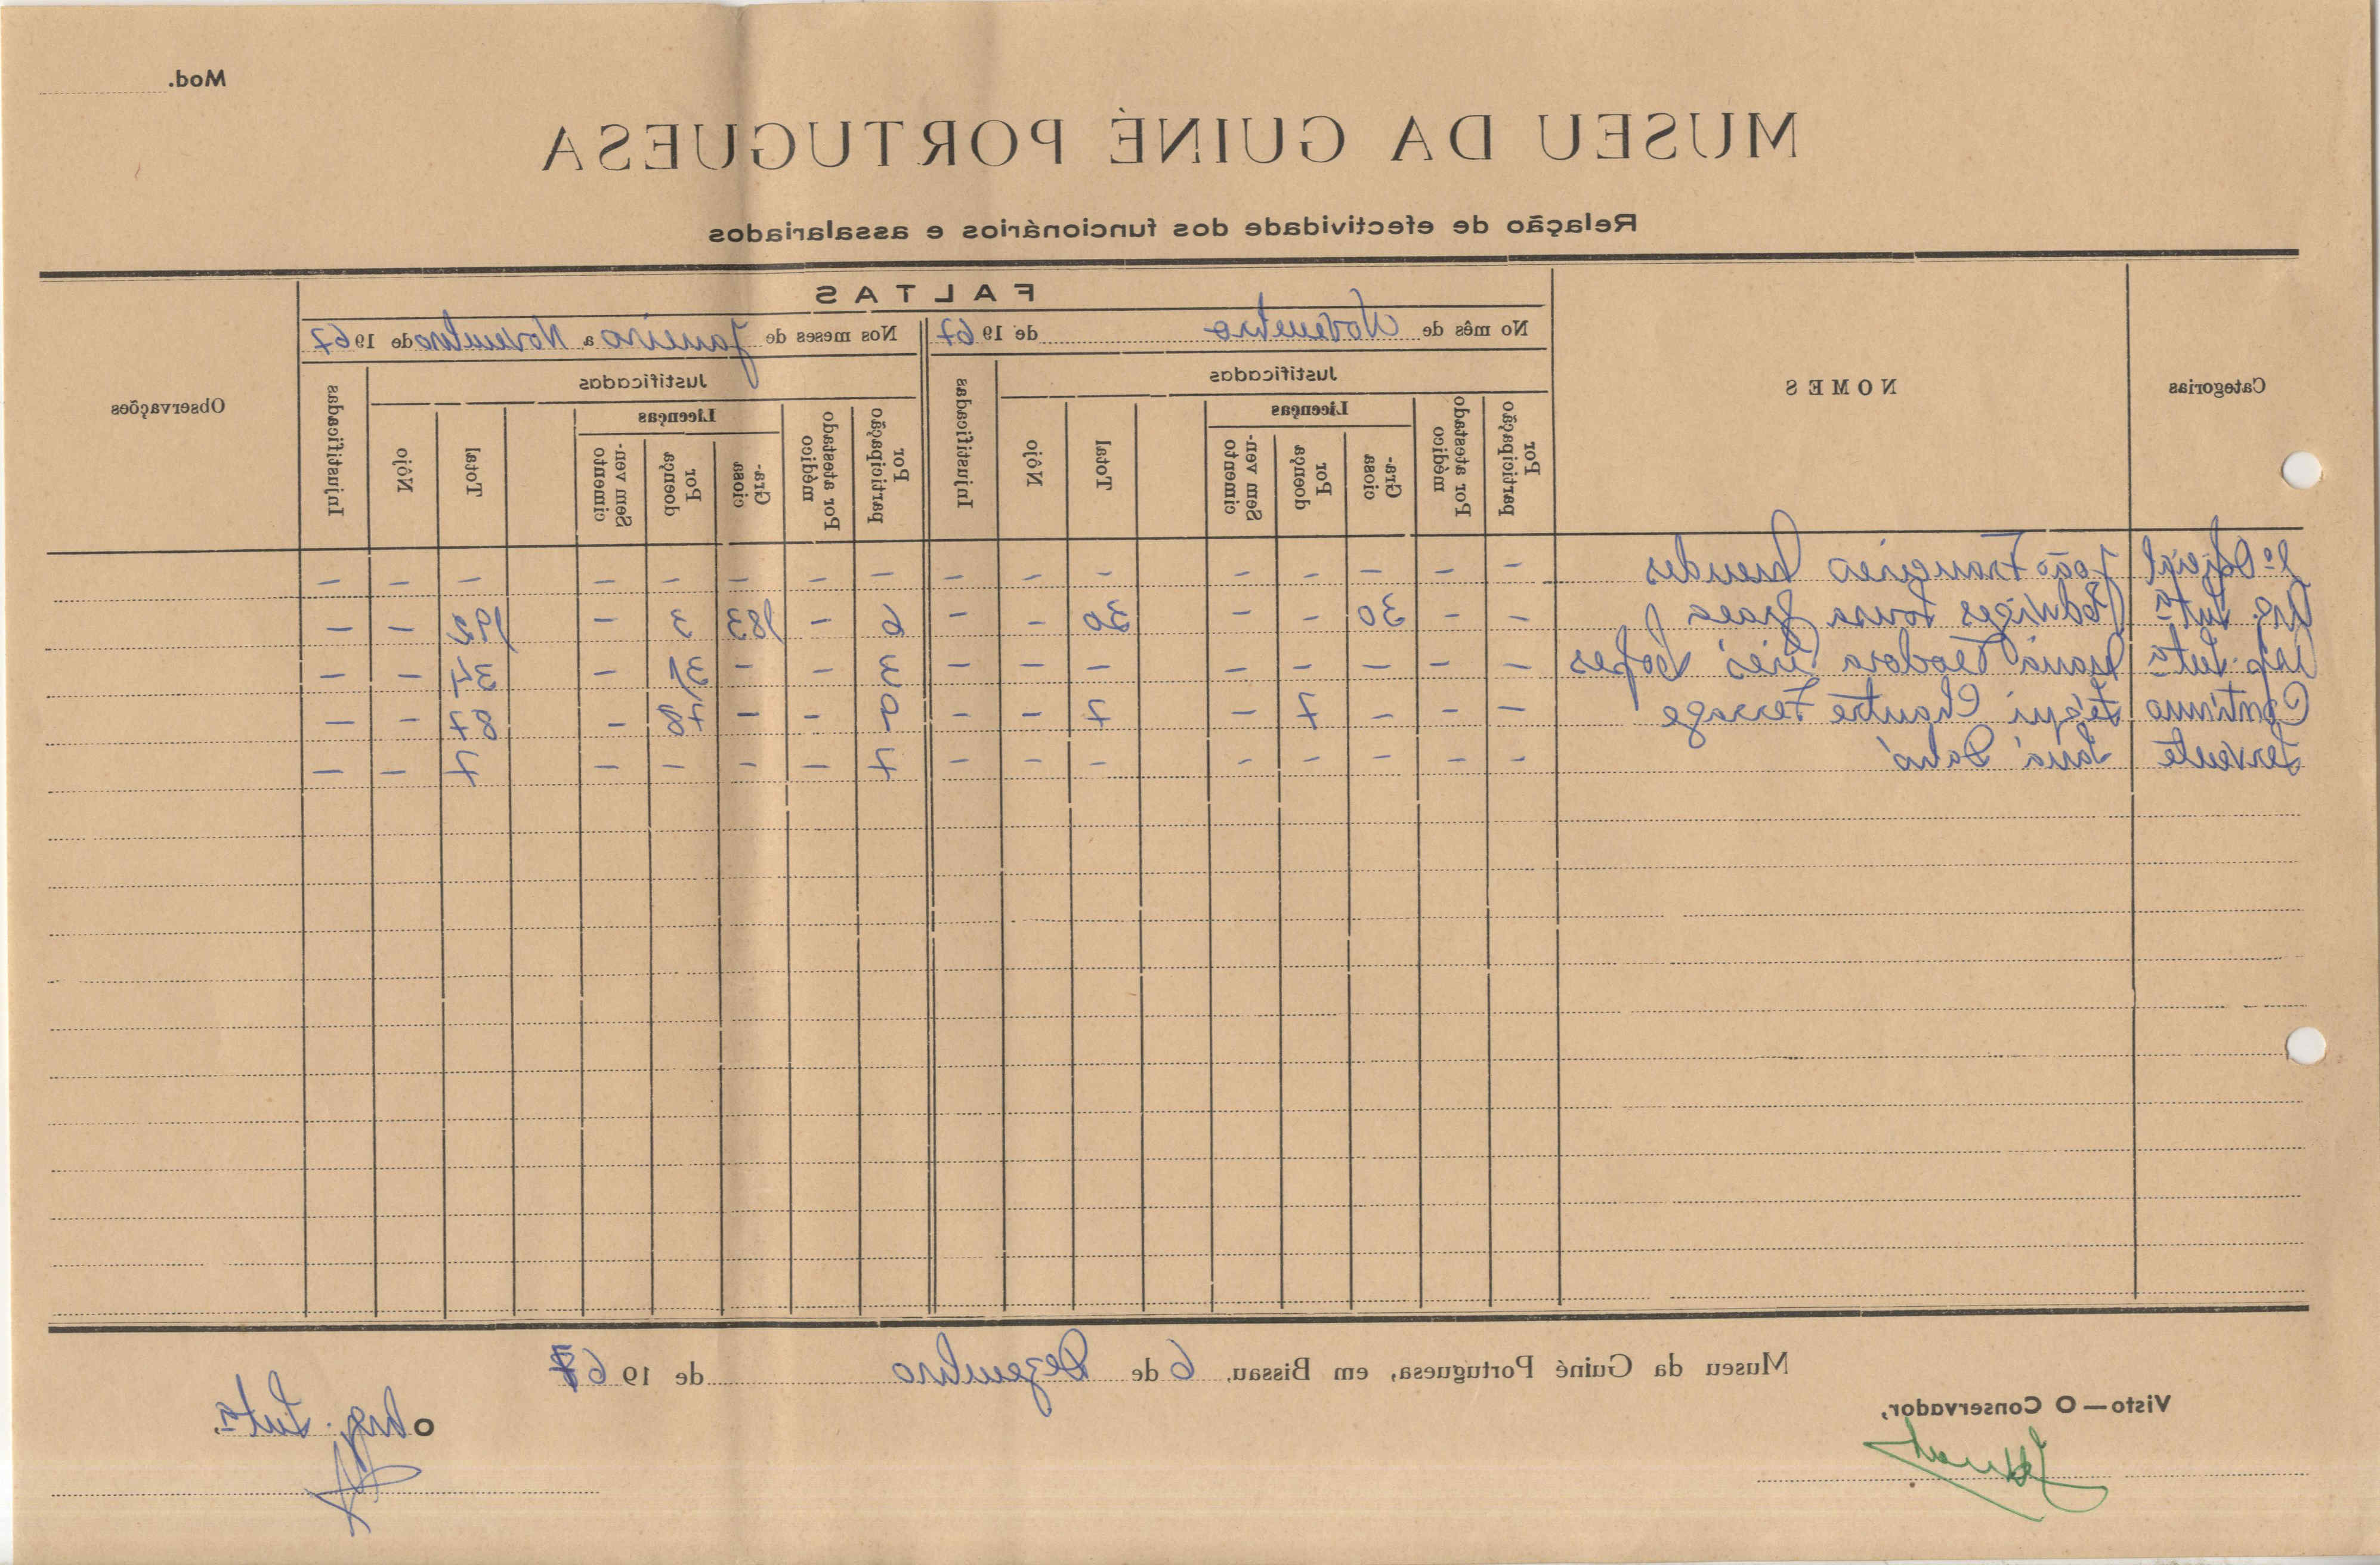 Mod.
MUSEU DA GUINÉ PORTUGUESA
Relação de efectividade dos funcionários e assalariados
Categorias
NOMES
FALTAS
Observações
No mês de Novembro de 1967
Nos meses de Janeiro a Novembro de 1967
Justificadas
Injustificadas
Justificadas
Injustificadas
Por participação
Por atestado médico
Licenças
Graciosa
Por doença
Sem vencimento
Total
Nôjo
Por participação
Por atestado médico
Licenças
Graciosa
Por doença
Sem vencimento
Total
Nôjo
João Francisco Mendes – – – – – – – – – – – – – – – –
Edviges Sousa – – 30 – – 30 – – 6 – 183 3 – 192 – –
Maria Teodora Inês Lopes – – – – – – – – 3 – – 31 – 34 – –
Contínuo – – – 7 – 7 – – 9 – – 78 – 87 – –
Servente – – – – – – – – 7 – – – – 7 – –
Museu da Guiné Portuguesa, em Bissau, 6 de Dezembro de 1967
Visto — O Conservador,
O Arg. Intº.